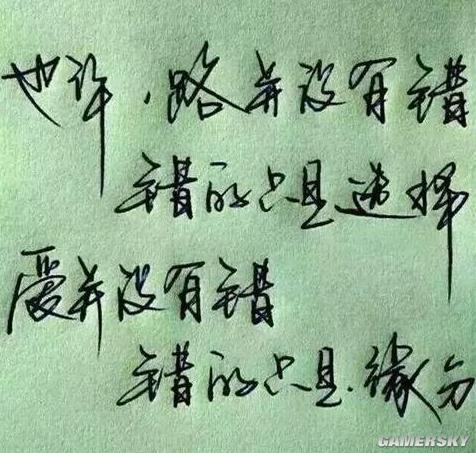 也许，路并没有错
错的只是选择
爱并没有错
错的只是.缘分
GAMERSKY